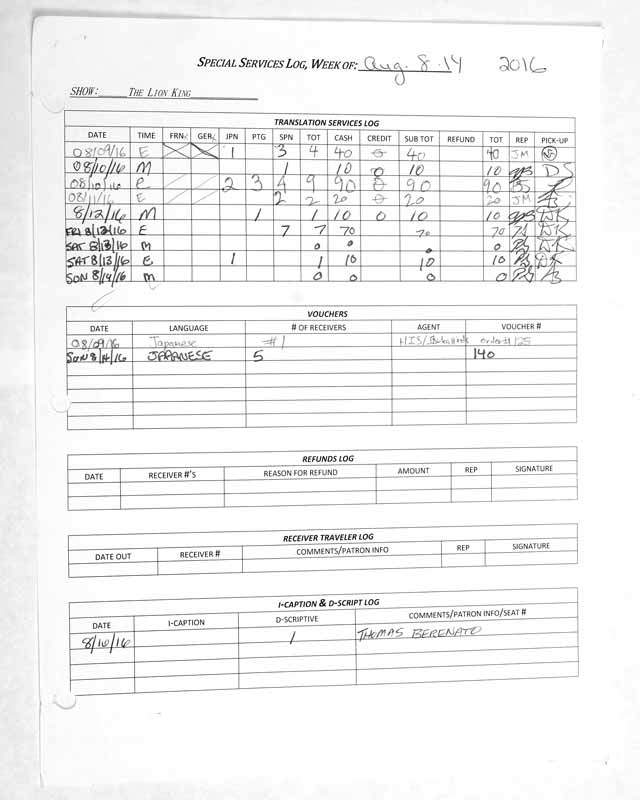 SPECIAL SERVICES LOG, WEEK OF: Aug. 8-14 2016
SHOW: THE LION KING
TRANSLATION SERVICES LOG
DATE TIME FRN GER JPN PTG SPN TOT CASH CREDIT SUB TOT REFUND TOT REP PICK-UP
08/09/16 E 1 3 4 40 0 40 40 JM
08/10/16 M 1 10 0 10 10 DS
08/10/16 E 2 3 4 9 90 0 90 90
08/11/16 E 2 2 20 0 20 20 JM
8/12/16 M 1 1 10 0 10 10 DK
FRI 8/12/16 E 7 7 70 70 70 DK
SAT 8/13/16 M 0 0 0 0 DK
SAT 8/13/16 E 1 1 10 10 10 DK
SUN 8/14/16 M 0 0 0 0
VOUCHERS
DATE LANGUAGE # OF RECEIVERS AGENT VOUCHER #
08/09/16 Japanese #1 HIS/ order# 125
SUN 8/14/16 JAPANESE 5 140
REFUNDS LOG
DATE RECEIVER #'S REASON FOR REFUND AMOUNT REP SIGNATURE
RECEIVER TRAVELER LOG
DATE OUT RECEIVER # COMMENTS/PATRON INFO REP SIGNATURE
I-CAPTION & D-SCRIPT LOG
DATE I-CAPTION D-SCRIPTIVE COMMENTS/PATRON INFO/SEAT #
8/10/16 1 THOMAS BERENATO